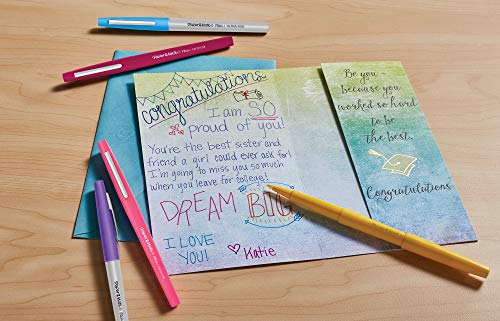 Paper Mate
Paper Mate Flair
congratulations
I am SO
proud of you!
You're the best sister and
friend a girl could ever ask for!
I'm going to miss you so much
when you leave for college!
DREAM BIG
I LOVE
YOU!
Katie
Be you -
because you
worked so hard
to be
the best.
Congratulations
Paper Mate